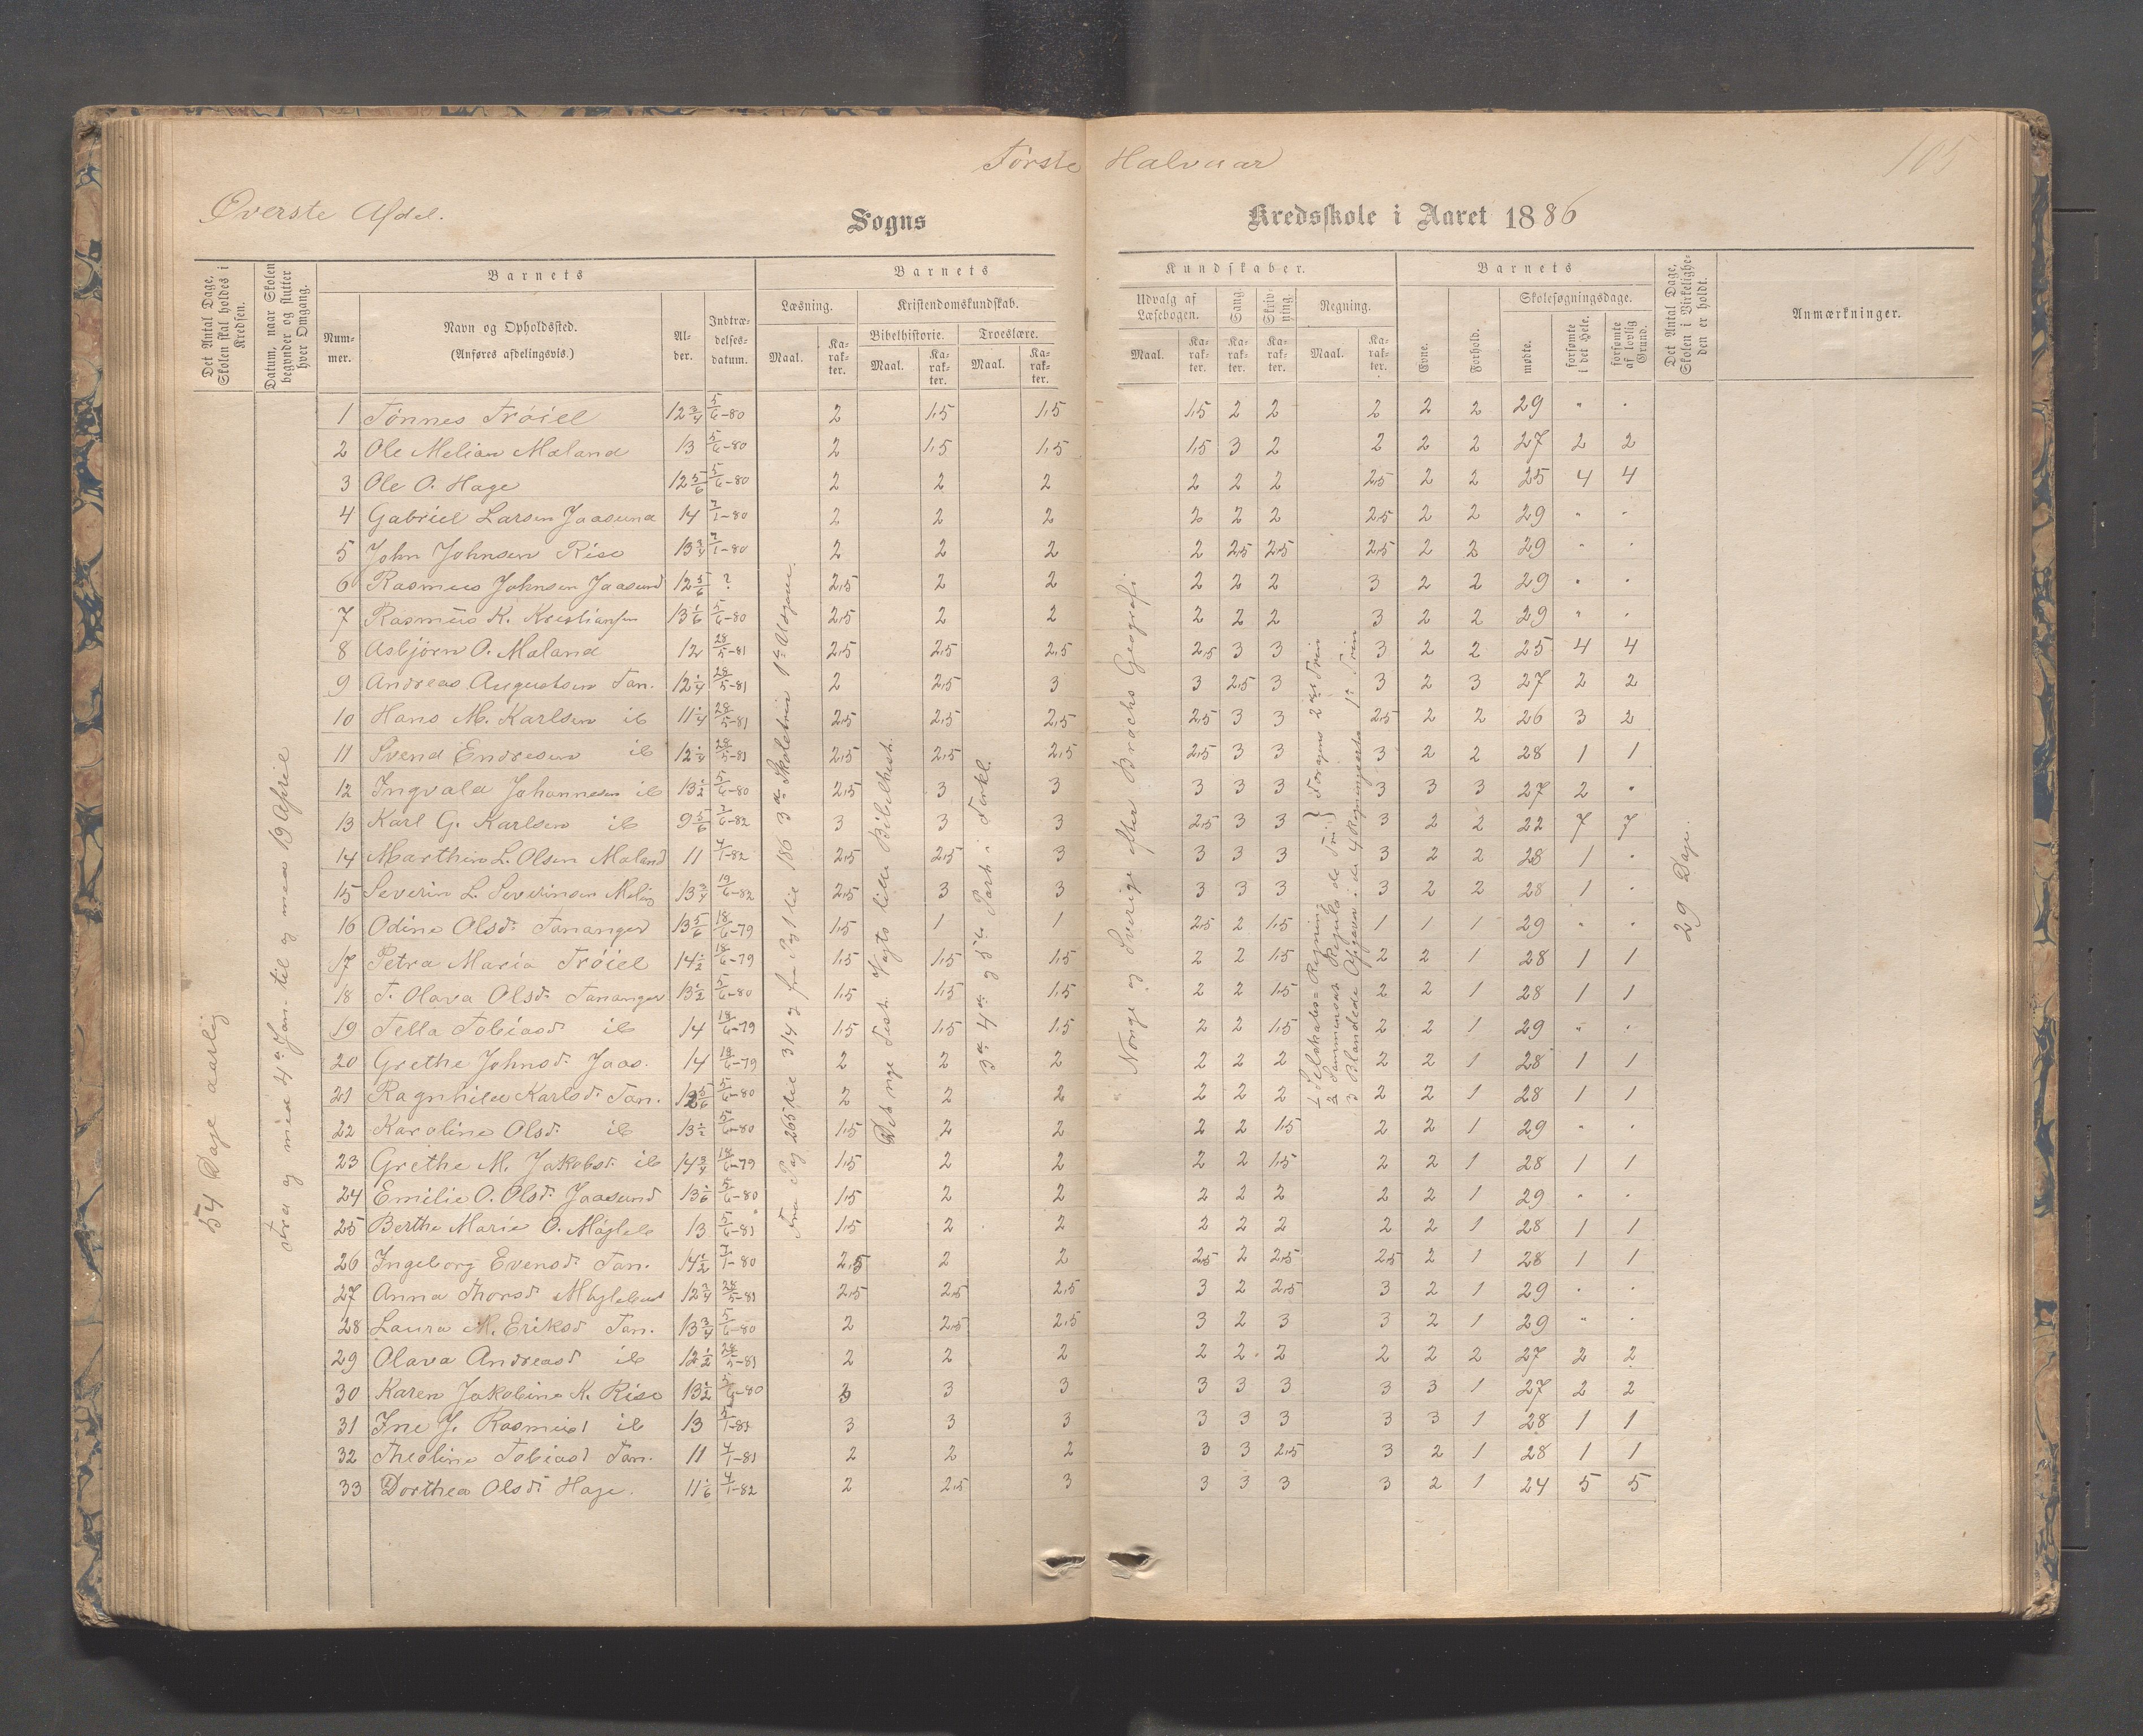 Første Halvaar
105
Øverste Afdel.
Sogns Kredsskole i Aaret 1886
Det Antal Dage, Skolen skal holdes i Kredsen.
Datum, naar Skolen begynder og slutter hver Omgang.
Barnets
Nummer.
Navn og Opholdssted.
(Anføres afdelingsvis.)
Alder.
Indtrædelsesdatum.
Barnets Kundskaber.
Læsning.
Maal.
Karakter.
Kristendomskundskab.
Bibelhistorie.
Maal.
Karakter.
Troeslære.
Maal.
Karakter.
Udvalg af Læsebogen.
Maal.
Karakter.
Sang
Karakter.
Skrivning.
Karakter.
Regning.
Maal.
Karakter.
Barnets
Evne.
Forhold.
Skolesøgningsdage.
mødte.
forsømte i det Hele.
forsømte af lovlig Grund.
Det Antal Dage, Skolen i Virkeligheden er holdt.
Anmærkninger.
54 Dage aarlig
Fra og med 4de Jan. til og med 19 April
Fra Pag 265 til 314 og fra Pag 1 til 186 3de Skoletrin 1ste Udgave.
Det nye Test. Vogts lille Bibelhist.
3de 4de og 5te Part i Forkl.
Norge og Sverige efter Brochs Geografi
1 Selskabs-Regning
2 Sammensat Regula de Tri } Foragens 2det Trin
3 Blandede Opgaver i de 4 Regningsarter 1ste Trin
29 Dage.
1 Tønnes Trøiel 12 3/4 5/6-80 2 1,5 1,5 1,5 2 2 2 2 2 29 " "
2 Ole Melian Maland 13 5/6-80 2 1,5 1,5 1,5 3 2 2 2 2 27 2 2
3 Ole O. Hage 12 5/6 5/6-80 2 2 2 2 2 2 2,5 2 2 25 4 4
4 Gabriel Larsen Jaasund 14 7/1-80 2 2 2 2 2 2 2,5 2 2 29 " "
5 John Johnsen Risa 13 3/4 7/1-80 2 2 2 2 2,5 2,5 2,5 2 2 29 " "
6 Rasmus Johnsen Jaasund 12 5/6 ? 2,5 2 2 2 2 2 3 2 2 29 " "
7 Rasmus K. Kristiansen 13 1/6 5/6-80 2,5 2 2 2 2 2 3 2 2 29 " "
8 Asbjørn O. Maland 12 28/5-81 2,5 2,5 2,5 2,5 3 3 3 2 2 25 4 4
9 Andreas Augustsen Tan. 12 1/4 28/5-81 2 2,5 3 3 2,5 3 3 2 3 27 2 2
10 Hans M. Karlsen ib 11 1/4 28/5-81 2,5 2,5 2,5 2,5 3 3 2,5 2 2 26 3 2
11 Svend Endresen ib 12 1/4 28/5-81 2,5 2,5 2,5 2,5 3 3 3 2 2 28 1 1
12 Ingvald Johannesen ib 13 1/2 5/6-80 2,5 3 3 3 3 3 3 3 3 27 2 "
13 Karl G. Karlsen ib 9 5/6 7/6-82 3 3 3 2,5 3 3 3 2 2 22 7 7
14 Marthin L. Olsen Maland 11 4/1-82 2,5 2,5 3 3 3 3 3 2 2 28 1 "
15 Severin L. Severinsen Meling 13 3/4 19/6-82 2,5 3 3 3 3 3 3 2 2 28 1 "
16 Odine Olsd. Tananger 13 5/6 18/6-79 1,5 1 1 2,5 2 1,5 1 1 1 29 " "
17 Petra Maria Trøiel 14 1/2 18/6-79 1,5 1,5 1,5 2 2 1,5 2 2 1 28 1 1
18 T. Olava Olsd. Tananger 13 1/2 5/6-80 1,5 1,5 1,5 2 2 1,5 2 2 1 28 1 1
19 Tella Tobiasd ib 14 18/6-79 1,5 1,5 1,5 2 2 1,5 2 2 1 29 " "
20 Grethe Johnsd. Jaas. 14 18/6-79 2 2 2 2 2 2 2 2 1 28 1 1
21 Ragnhild Karlsd. Tan. 12 5/6 5/6-80 2 2 2 2 2 2 2 2 1 28 1 1
22 Karoline Olsd. ib 13 1/2 5/6-80 1,5 2 2 2 2 1,5 2 2 1 29 " "
23 Grethe M. Jakobsd. ib 14 3/4 18/6-79 1,5 2 2 2 2 1,5 2 2 1 28 1 1
24 Emilie O. Olsd. Jaasund 13 1/6 5/6-80 1,5 2 2 2 2 2 2 2 1 29 " "
25 Berthe Marie O. Møgleb 13 5/6-81 1,5 2 2 2 2 2 2 2 1 28 1 1
26 Ingeborg Evensd. Tan. 14 1/2 7/1-80 2,5 2 2 2,5 2 2,5 2,5 2 1 28 1 1
27 Anna Thorsd. Møglebust 12 3/4 28/5-81 2,5 2,5 2,5 3 2 2,5 3 2 1 29 " "
28 Laura M. Eriksd Tan. 13 3/4 5/6-80 2 2,5 2,5 3 2 3 3 2 1 29 " "
29 Olava Andreasd ib 12 1/2 28/5-81 2 2 2 2 2 2 2 2 2 27 2 2
30 Karen Jakobine K. Risa 13 1/2 5/6-80 3 3 3 3 3 3 3 3 1 27 2 2
31 Ine J. Rasmusd ib 13 5/1-81 3 3 3 3 3 3 3 3 1 28 1 1
32 Theoline Tobiasd Tan. 11 4/1-81 2 2 2 3 3 2,5 3 2 1 28 1 1
33 Dorthea Olsd. Hage. 11 1/6 4/1-82 2 2,5 3 3 3 3 3 2 1 24 5 5